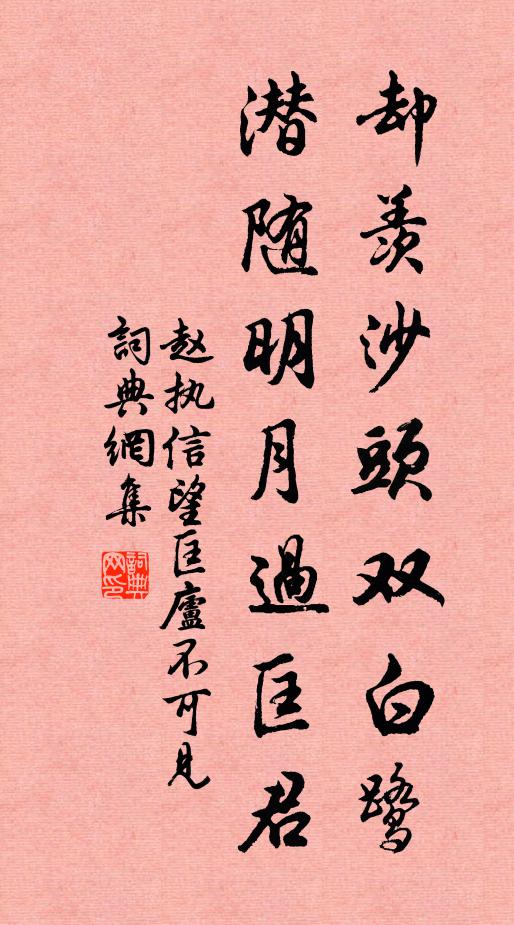 却羡沙頭双白鹭
潜随明月過匡君
赵执信望匡廬不可見
詞典網集
詞典网印